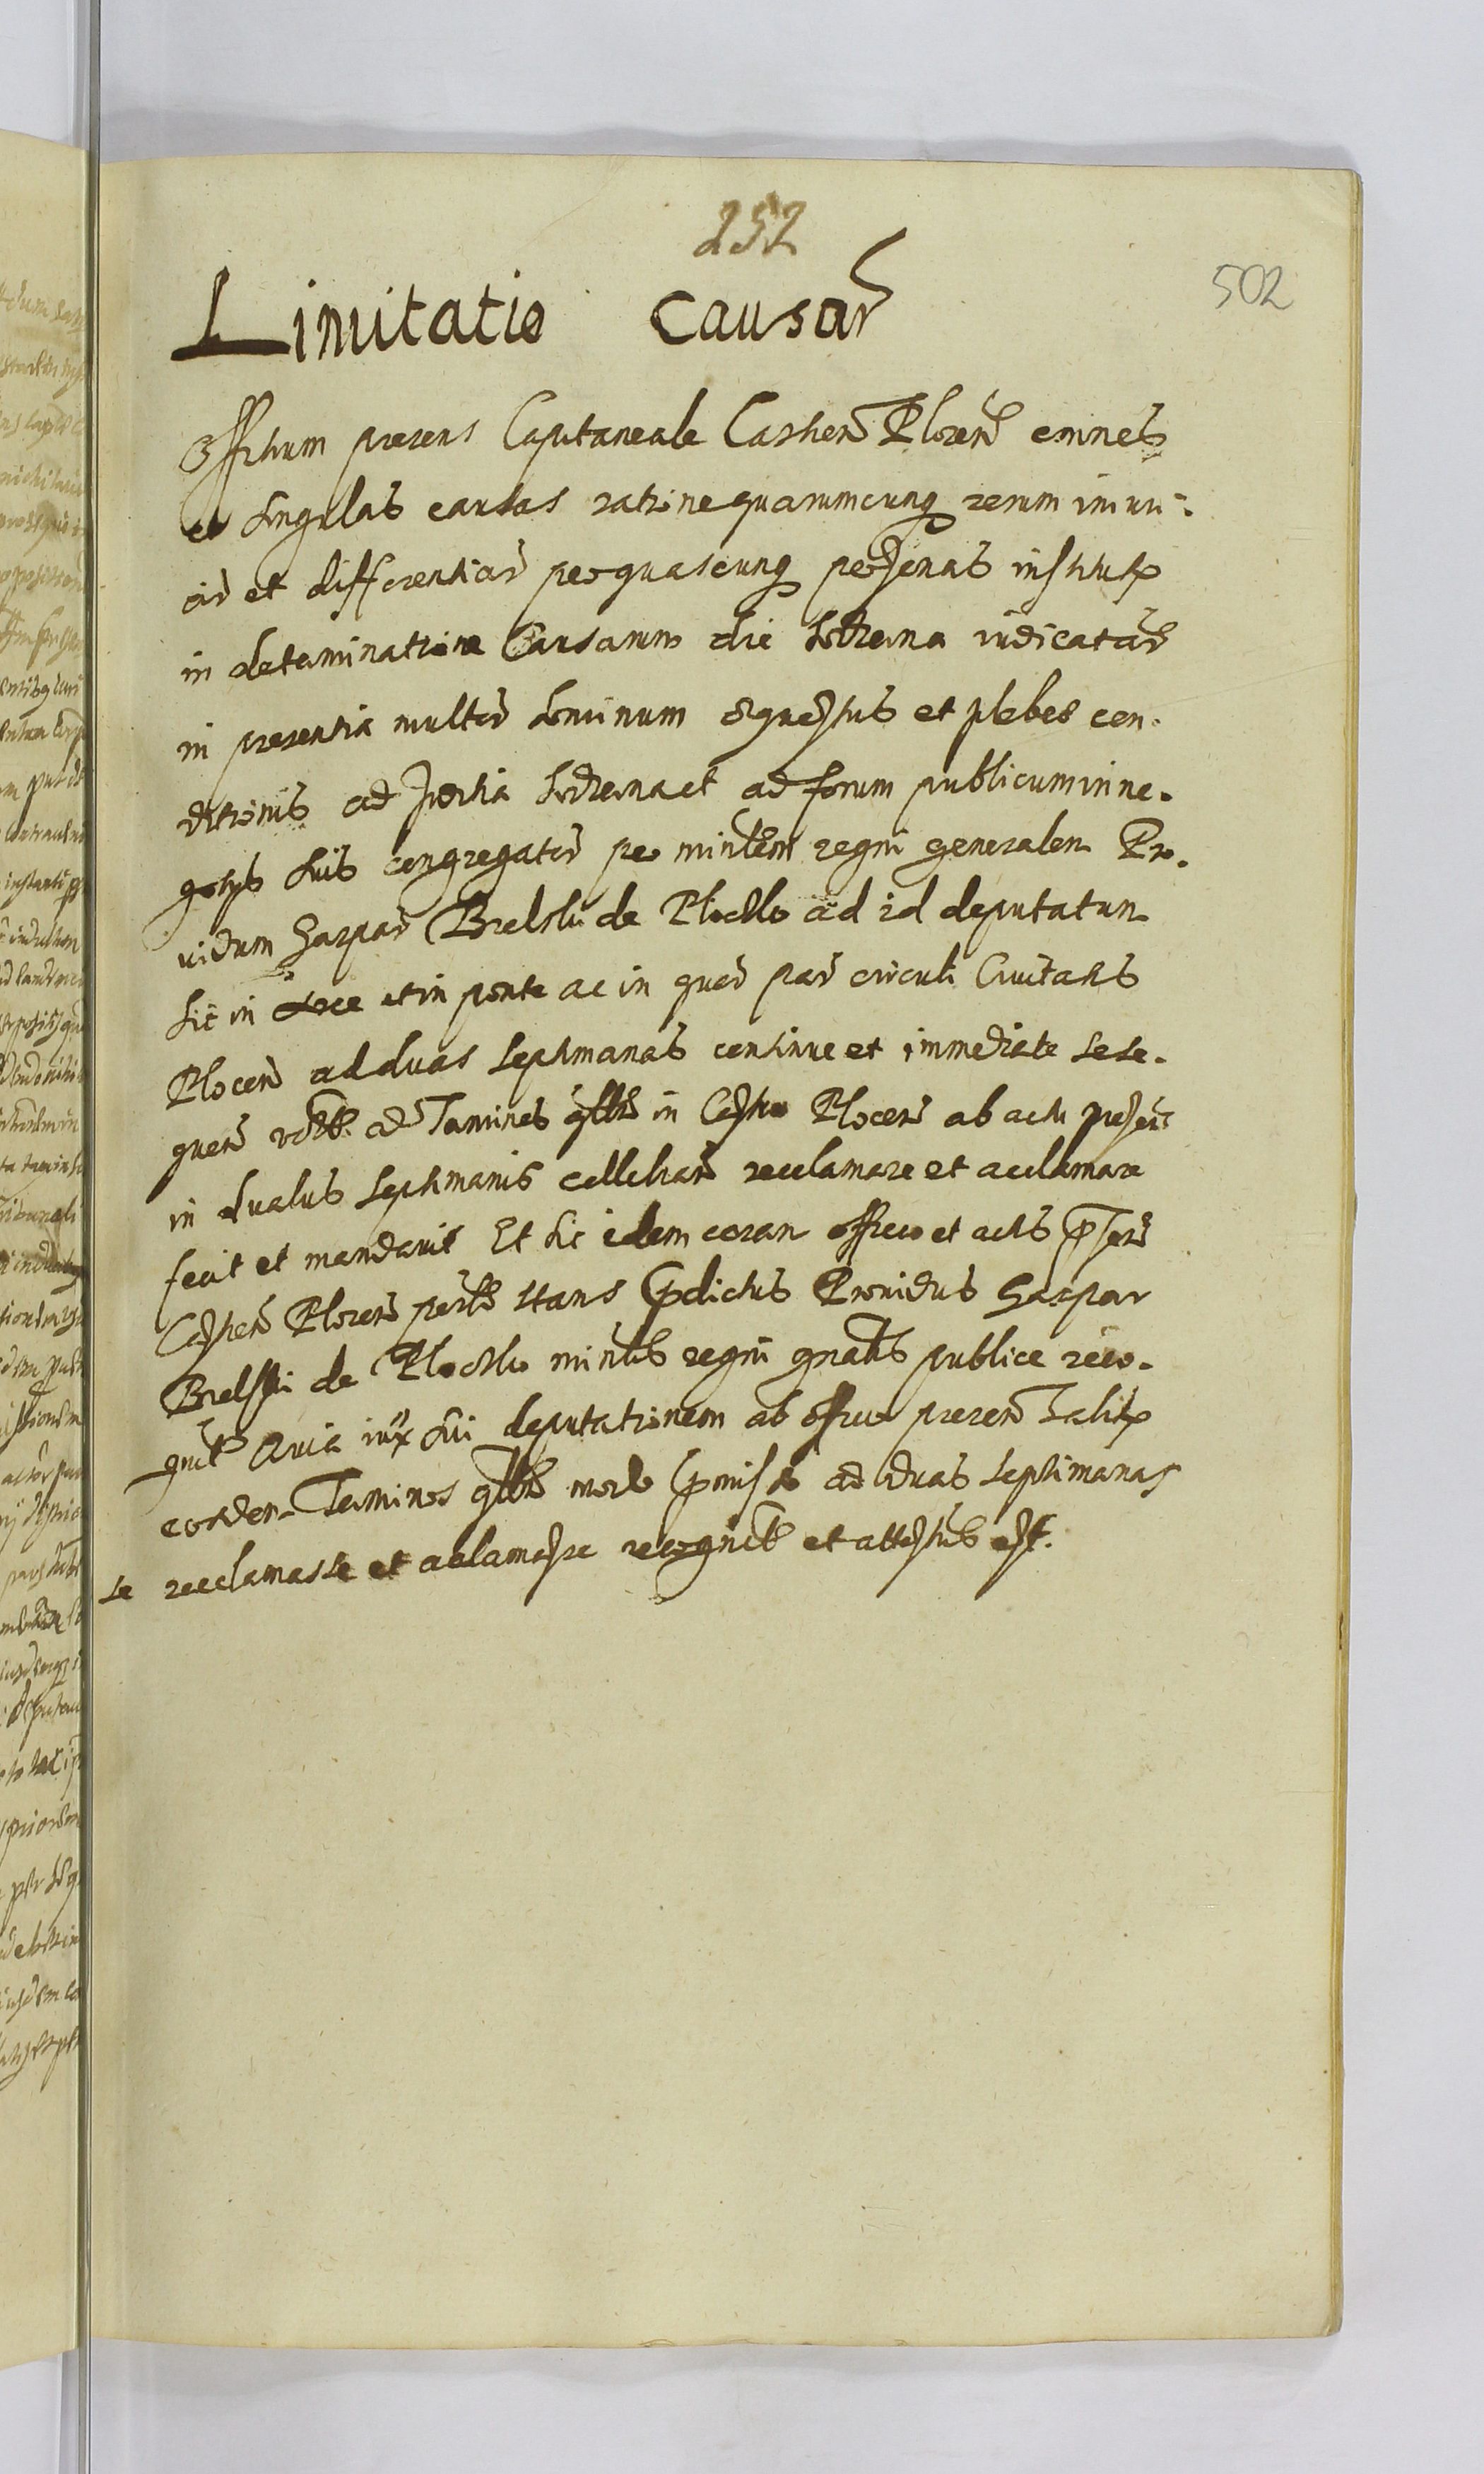 252
502
Limitatio Causar
Officium presens Capitaneale Castren Plocen omnes
et singulas causas ratione quarumcunq rerum iniuri-
ar et differentiar per quascunq personas institut
in determinatione Causarum die hodierna iudicatar
in presentia multor hominum equestris et plebee con-
ditionis ad Iudicia hodierna et ad forum publicum in ne-
gotys suis congregator per minrlem regni generalem Pro-
uidum Gaspar Brelski de Plocsko ad id deputatum
sic in arce et in ponte ac in quor par circuli Ciuitatis
Plocen ad duas septimanas continue et immediate sese-
quen ad Terminos qllr in Castro Plocen ab actu presen
in duabus septimanis celebran reclamare et acclamare
fecit et mandauit Et sic idem coram officio et actis pnr
Castren Plocen perlr stans pdictus Prouidus Gaspar
Brelski de Plocsko minrlis regni gnalis publice reco-
gnit Quia iux sui deputationem ab officio presen Talit
eosdem Terminos qllr modo pmisso ad duas septimanas
se reclamasse et acclamasse recognit et attestus est.